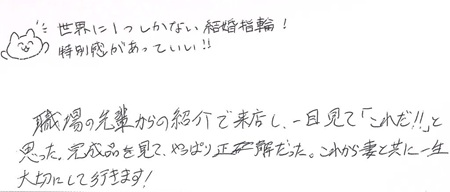 世界に1つしかない結婚指輪！
特別感があっていい!!
職場の先輩からの紹介で来店し、一目見て「これだ!!」と
思った。完成品を見て、やっぱり正解だった。これから妻と共に一生
大切にして行きます！